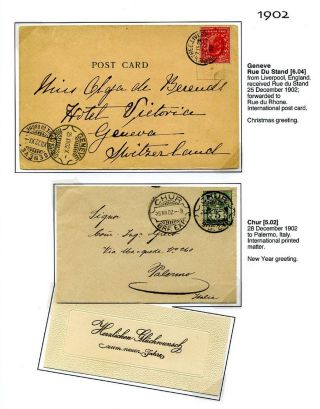 1902
POST CARD
Miss Olga de Berends
Hotel Victoria
Geneva
Switzerland
Geneve
Rue Du Stand [6.04]
from Liverpool, England.
received Rue du Stand
25 December 1902;
forwarded to
Rue du Rhone.
International post card.
Christmas greeting.
CHUR
Signore
Via
Palermo
Italie
Chur [5.02]
28 December 1902
to Palermo, Italy.
International printed
matter.
New Year greeting.
Herzlichen Glückwunsch
zum neuen Jahre